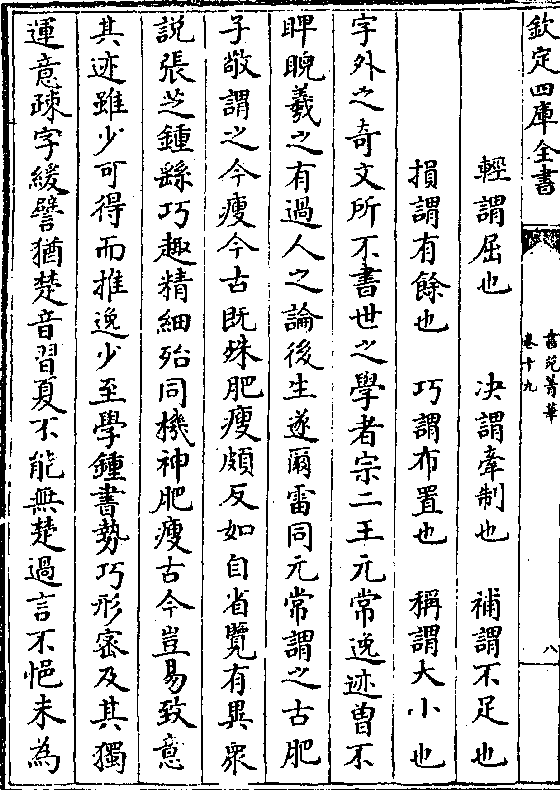 欽定四庫全書
書苑菁華
卷十九
八
輕謂屈也 决謂牽制也 補謂不足也
損謂有餘也 巧謂布置也 稱謂大小也
字外之奇文所不書世之學者宗二王元常逸迹曽不
睥睨羲之有過人之論後生遂爾雷同元常謂之古肥
子敬謂之今瘦今古既殊肥瘦頗反如自省覽有異衆
説張芝鍾繇巧趣精細殆同機神肥瘦古今豈易致意
其迹雖少可得而推逸少至學鍾書勢巧形密及其獨
運意疎字緩譬猶楚音習夏不能無楚過言不悒未為